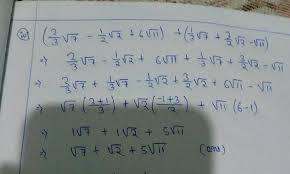 (2/3√7 - 1/2√2 + 6√11) + (1/3√7 + 3/2√2 - √11)
⇒ 2/3√7 - 1/2√2 + 6√11 + 1/3√7 + 3/2√2 - √11
⇒ 2/3√7 + 1/3√7 - 1/2√2 + 3/2√2 + 6√11 - √11
⇒ √7 (2+1/3) + √2 (-1+3/2) + √11 (6-1)
⇒ 1√7 + 1√2 + 5√11
⇒ √7 + √2 + 5√11 (ans)